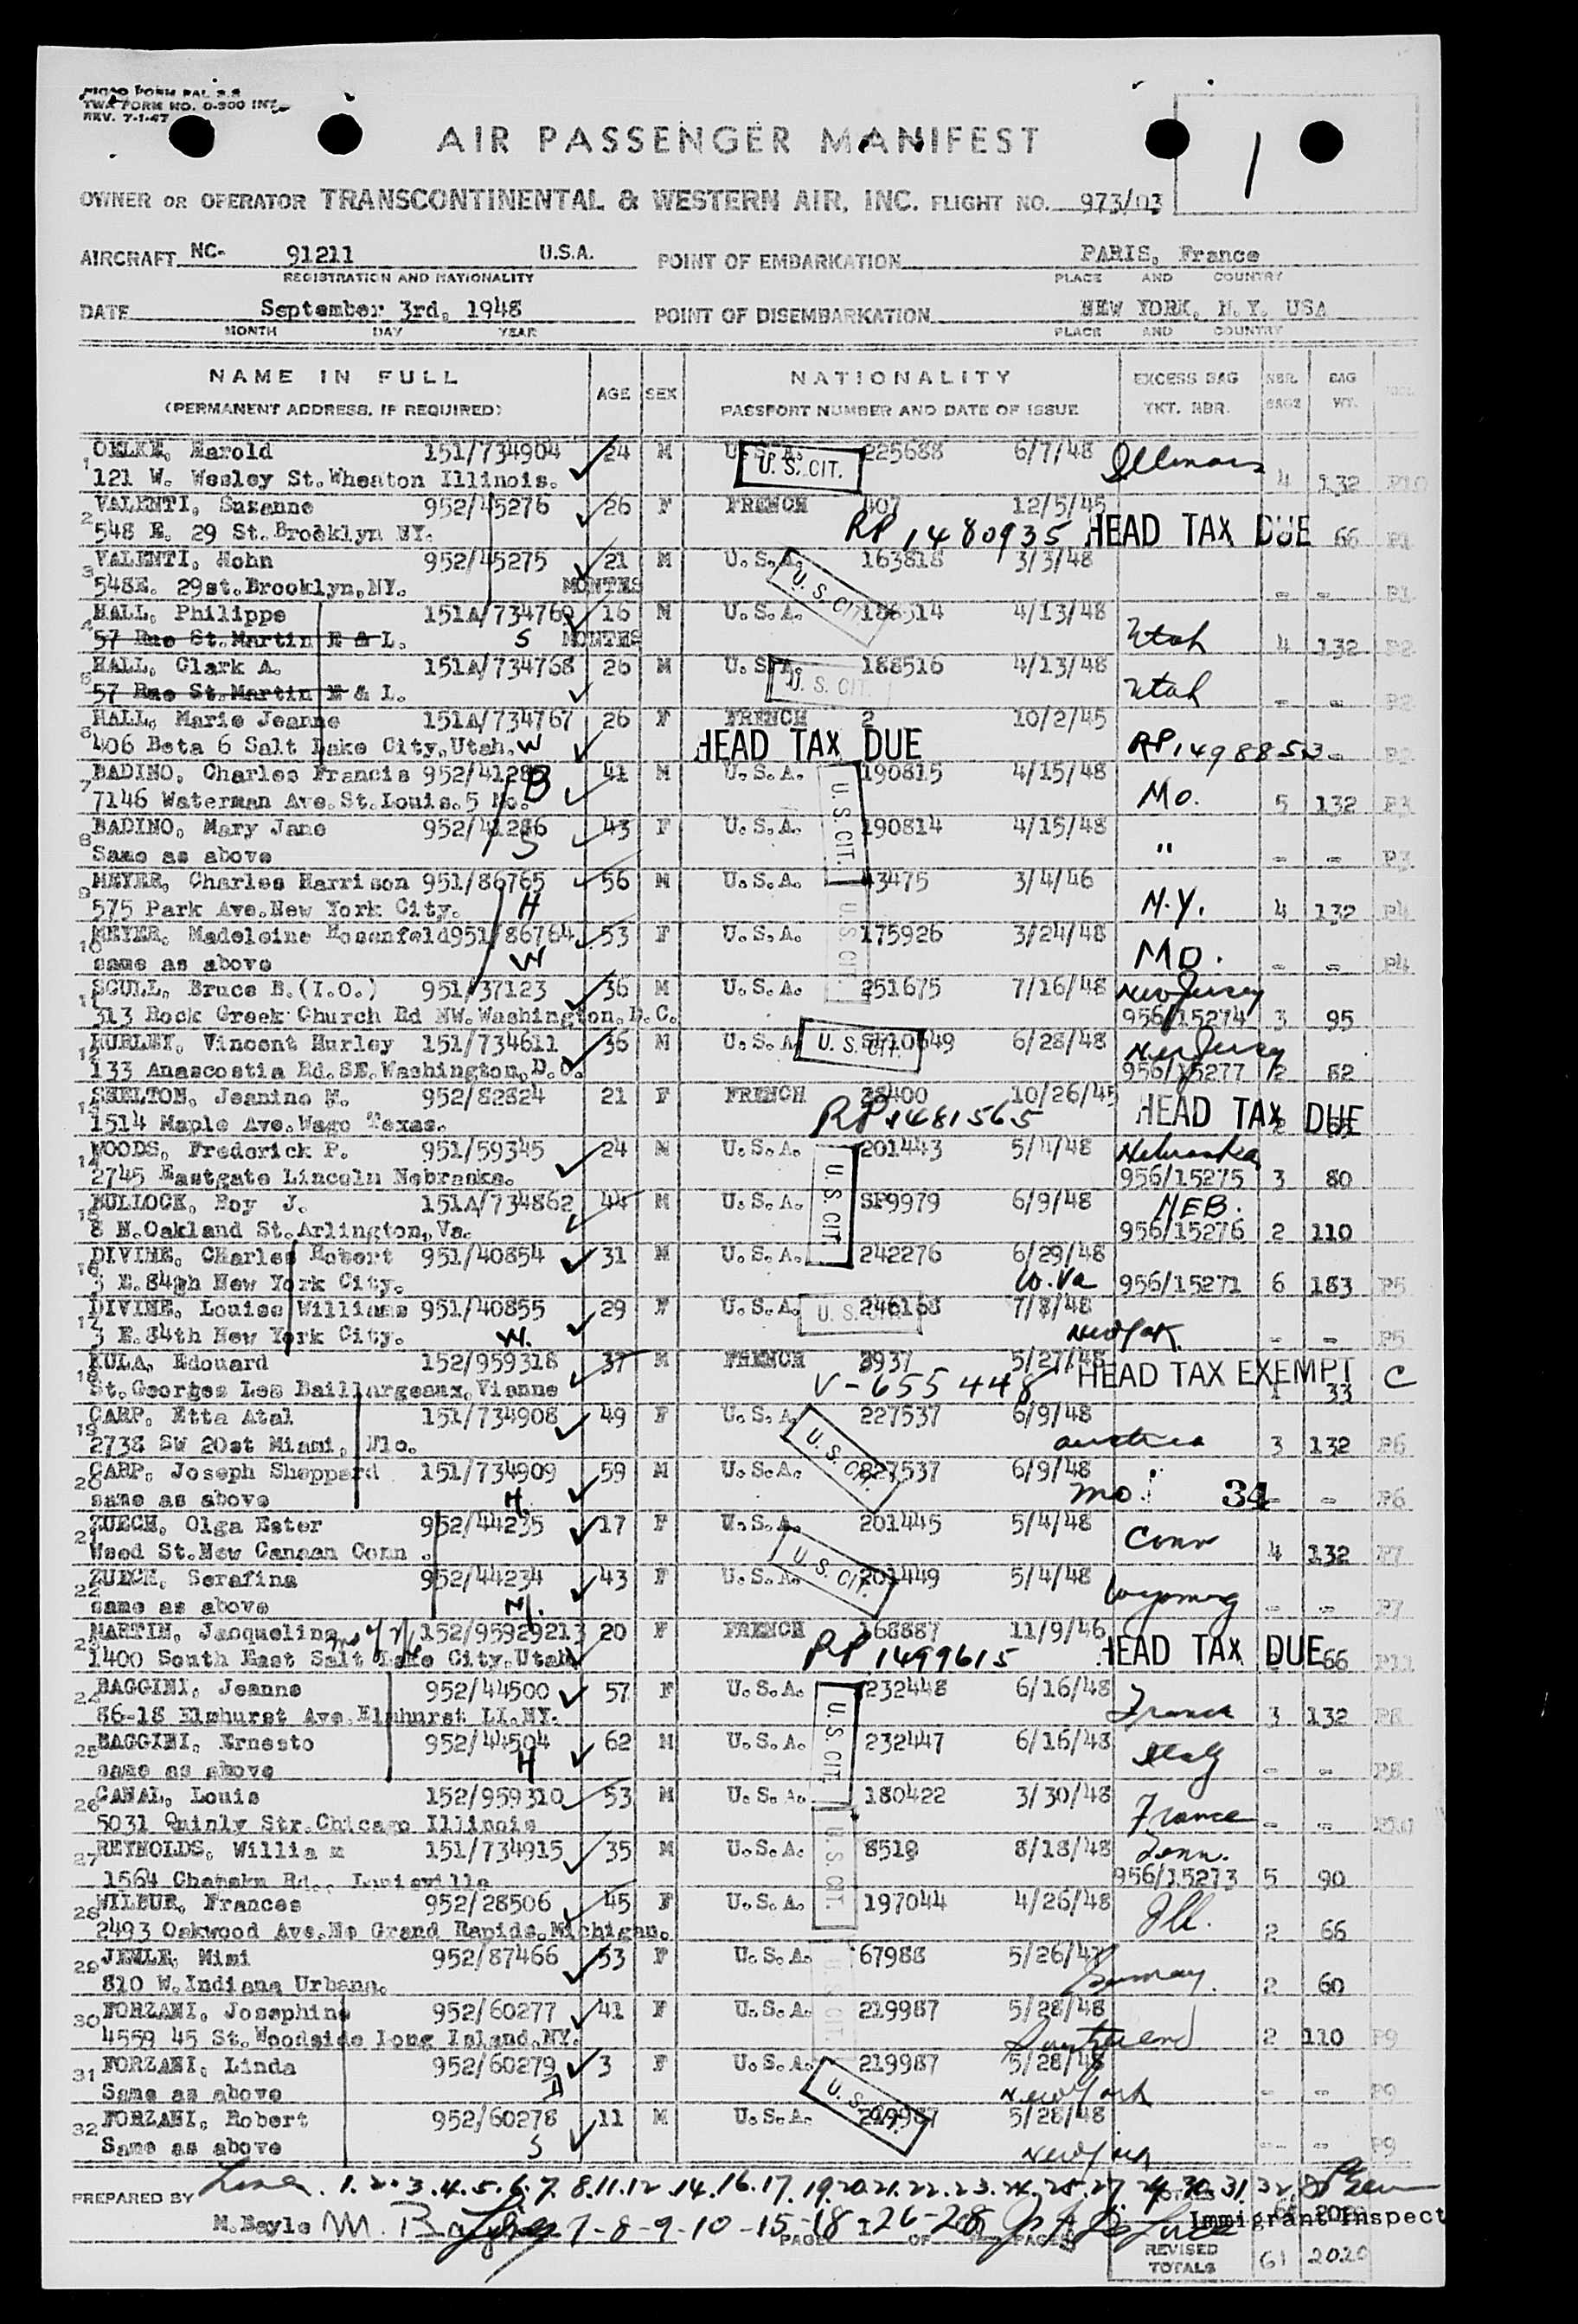 TWA FORM NO. O-300 INT
REV. 7-1-47
AIR PASSENGER MANIFEST
1
OWNER OR OPERATOR TRANSCONTINENTAL & WESTERN AIR, INC. FLIGHT NO. 973/03
AIRCRAFT NC- 91211 U.S.A. POINT OF EMBARKATION PARIS, France
REGISTRATION AND NATIONALITY PLACE AND COUNTRY
DATE September 3rd, 1948 POINT OF DISEMBARKATION NEW YORK, N.Y. USA
MONTH DAY YEAR PLACE AND COUNTRY
NAME IN FULL AGE SEX NATIONALITY EXCESS BAG NBR. BAG
(PERMANENT ADDRESS, IF REQUIRED) PASSPORT NUMBER AND DATE OF ISSUE TKT. NBR. BAGS WT.
1 OELKE, Harold 151/734904 24 M U.S.A. 225688 6/7/48 Illinois
121 W. Wesley St.Wheaton Illinois. U. S. CIT. 4 132 P10
2 VALENTI, Suzanne 952/45276 26 F FRENCH 407 12/5/45
548 E. 29 St. Brooklyn NY. RP 1480935 HEAD TAX DUE 66 P1
3 VALENTI, John 952/45275 21 M U.S.A. 163818 3/3/48
548E. 29st.Brooklyn,NY. MONTHS U. S. CIT. - - P1
4 HALL, Philippe 151A/734769 16 M U.S.A. 188514 4/13/48
57 Rue St.Martin E & L. S MONTHS Utah 4 132 P2
5 HALL, Clark A. 151A/734768 26 M U.S.A. 188516 4/13/48
57 Rue St.Martin E & L. U. S. CIT. Utah - - P2
6 HALL, Marie Jeanne 151A/734767 26 F FRENCH 2 10/2/45
406 Beta 6 Salt Lake City,Utah. W HEAD TAX DUE RP1498853 - P2
7 BADINO, Charles Francis 952/41285 41 M U.S.A. 190815 4/15/48
7146 Waterman Ave.St.Louis.5 Mo. U. S. CIT. Mo. 5 132 P3
8 BADINO, Mary Jane 952/41286 43 F U.S.A. 190814 4/15/48
Same as above S " - - P3
9 MEYER, Charles Harrison 951/86765 56 M U.S.A. 43475 3/4/46
575 Park Ave.New York City. H U. S. CIT. N.Y. 4 132 P4
10 MEYER, Madeleine Rosenfeld951/86764 53 F U.S.A. 175926 3/24/48
same as above W MO. - - P4
11 SCULL, Bruce B.(I.O.) 951/37123 36 M U.S.A. 251675 7/16/48 New Jersey
313 Rock Creek Church Rd NW.Washington.D.C. 956/15274 3 95
12 HURLEY, Vincent Hurley 151/734611 36 M U.S.A. U. S. CIT. SP10649 6/28/48 New Jersey
133 Anascostia Rd.SE.Washington,D.C. 956/15277 2 82
13 SHELTON, Jeanine M. 952/82824 21 F FRENCH 28400 10/26/45
1514 Maple Ave.Waco Texas. RP 1481565 HEAD TAX DUE
14 WOODS, Frederick P. 951/59345 24 M U.S.A. 201443 5/4/48 Nebraska
2745 Eastgate Lincoln Nebraska. U. S. CIT. 956/15275 3 80
15 BULLOCK, Roy J. 151A/734862 44 M U.S.A. SP9979 6/9/48 NEB.
8 N.Oakland St.Arlington,Va. 956/15276 2 110
16 DIVINE, CHarles Robert 951/40854 31 M U.S.A. 242276 6/29/48
3 E.84gh New York City. W.Va 956/15271 6 183 P5
17 DIVINE, Louise Williams 951/40855 29 F U.S.A. U. S. CIT. 246168 7/8/48
3 E.84th New York City. W. New York - - P5
18 KULA, Edouard 152/959318 37 M FRENCH 3937 5/27/48
St.Georges Les Baillargeaux,Vianne V-655448 HEAD TAX EXEMPT 1 33 C
19 CARP, Etta Atal 151/734908 49 F U.S.A. 227537 6/9/48
2738 SW 20st Miami, Flo. U. S. CIT. Austria 3 132 P6
20 CARP, Joseph Sheppard 151/734909 59 M U.S.A. 227537 6/9/48
same as above H. Mo. 34 - - P6
21 ZUECH, Olga Ester 952/44235 17 F U.S.A. 201445 5/4/48
Weed St.New Canaan Conn . U. S. CIT. Conn 4 132 P7
22 ZUECH, Serafina 952/44234 43 F U.S.A. 201449 5/4/48
same as above M. Wyoming - - P7
23 MARTIN, Jacqueline 152/95929213 20 F FRENCH 168887 11/9/46
1400 South East Salt Lake City,Utah RP 1499615 HEAD TAX DUE 66 P11
24 BAGGINI, Jeanne 952/44500 57 F U.S.A. 232448 6/16/48
86-18 Elmhurst Ave.Elmhurst LI.NY. U. S. CIT. France 3 132 P8
25 BAGGINI, Ernesto 952/44504 62 M U.S.A. 232447 6/16/48
same as above H Italy - - P8
26 CANAL, Louis 152/959310 53 M U.S.A. 180422 3/30/48
5031 Quinly Str.Chicago Illinois France - - P10
27 REYNOLDS, William 151/734915 35 M U.S.A. U. S. CIT. 8519 8/18/48 Tenn.
1564 Rd., Louisville 956/15273 5 90
28 WILBUR, Frances 952/28506 45 F U.S.A. 197044 4/26/48
2493 Oakwood Ave.Ne Grand Rapids.Michigan. Ill. 2 66
29 JEMLE, Mimi 952/87466 53 F U.S.A. 67988 5/26/47
810 W.Indiana Urbana. U. S. CIT. Germany. 2 60
30 FORZANI, Josephine 952/60277 41 F U.S.A. 219987 5/28/48
4559 45 St.Woodside Long Island.NY. Switzerland 2 110 P9
31 FORZANI, Linda 952/60279 3 F U.S.A. 219987 5/28/48
Same as above D New York - - P9
32 FORZANI, Robert 952/60278 11 M U.S.A. U. S. CIT. 219987 5/28/48
Same as above S New York - - P9
PREPARED BY 1.2.3.4.5.6.7.8.11.12.14.16.17.19.20.21.22.23.24.25.27.29.30.31.32. TOTALS
M.Bayle M. Bayle 7-8-9-10-15-18-26-28 PAGE OF PAGES Immigrant Inspect
REVISED TOTALS 61 2020